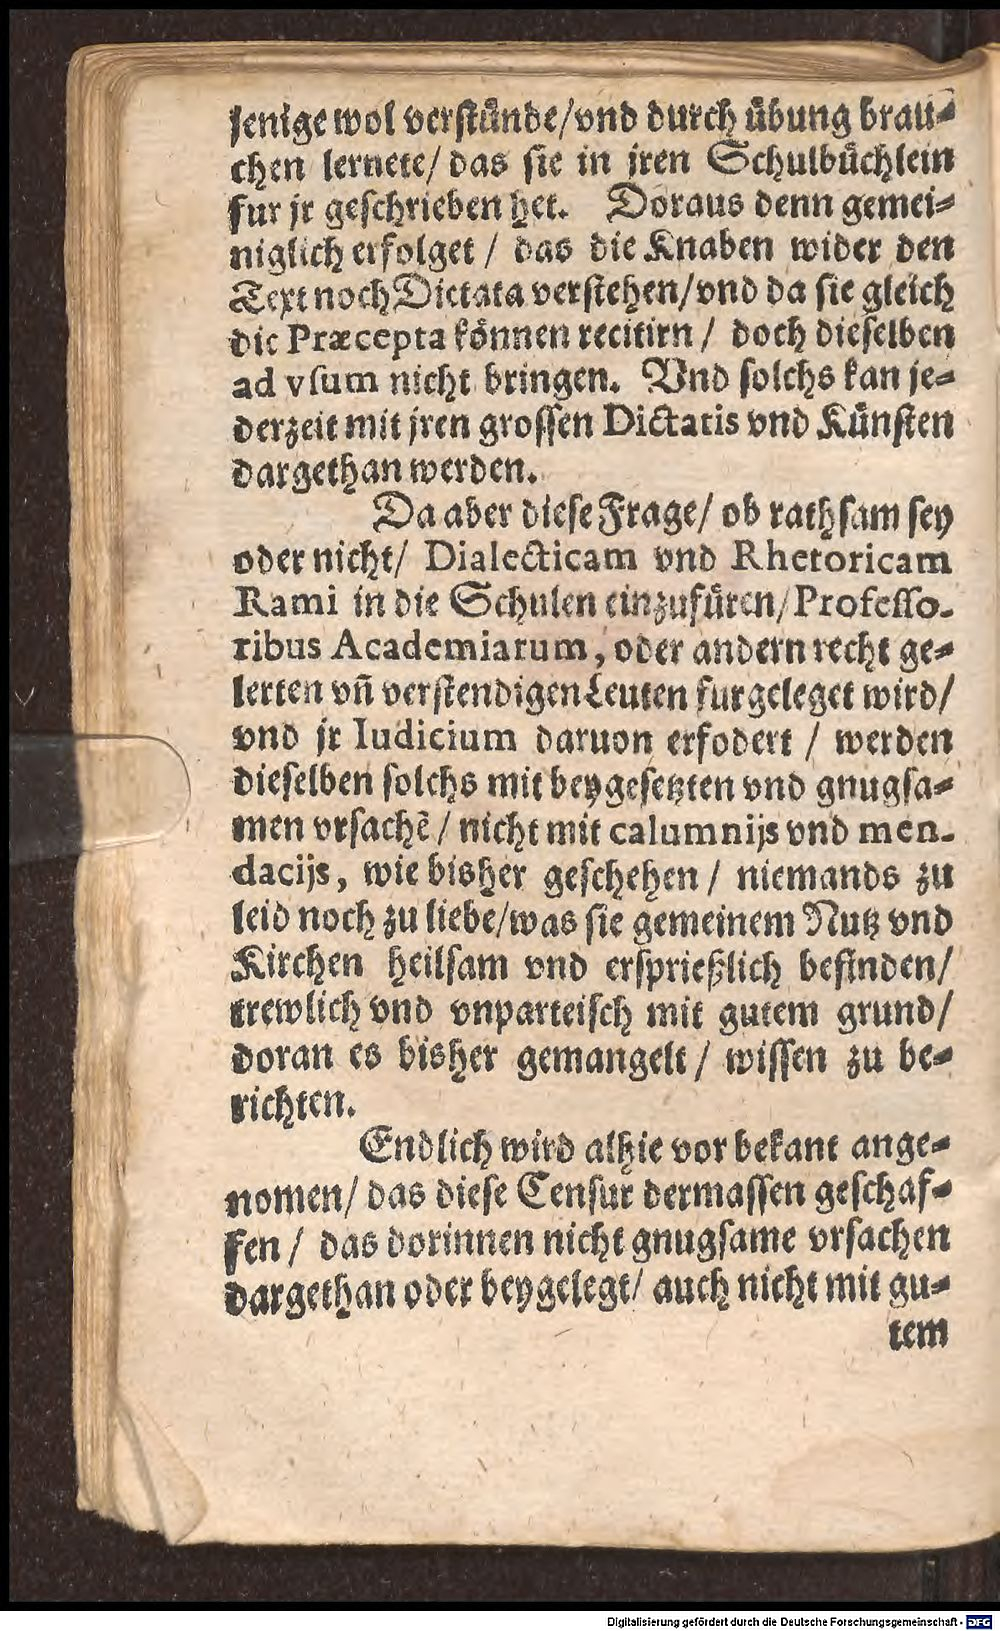 jenige wol verstünde/vnd durch übung brau⸗
chen lernete/ das sie in jren Schulbüchlein
fur jr geschrieben het. Doraus denn gemei⸗
niglich erfolget / das die Knaben wider den
Text noch Dictata verstehen/vnd da sie gleich
die Præcepta können recitirn / doch dieselben
ad vsum nicht bringen. Vnd solchs kan je⸗
derzeit mit jren grossen Dictatis vnd Künsten
dargethan werden.
Da aber diese Frage/ ob rathsam sey
oder nicht/ Dialecticam vnd Rhetoricam
Rami in die Schulen einzufüren/Professo-
ribus Academiarum, oder andern recht ge⸗
lerten vñ verstendigen Leuten furgeleget wird/
vnd jr Iudicium daruon erfodert / werden
dieselben solchs mit beygesetzten vnd gnugsa⸗
men vrsachẽ / nicht mit calumnijs vnd men-
dacijs, wie bisher geschehen / niemands zu
leid noch zu liebe/was sie gemeinem Nutz vnd
Kirchen heilsam vnd ersprießlich befinden/
trewlich vnd vnparteisch mit gutem grund/
doran es bisher gemangelt / wissen zu be⸗
richten.
Endlich wird alhie vor bekant ange⸗
nomen/ das diese Censur dermassen geschaf⸗
fen / das dorinnen nicht gnugsame vrsachen
dargethan oder beygelegt/ auch nicht mit gu⸗
tem
Digitalisierung gefördert durch die Deutsche Forschungsgemeinschaft - DFG